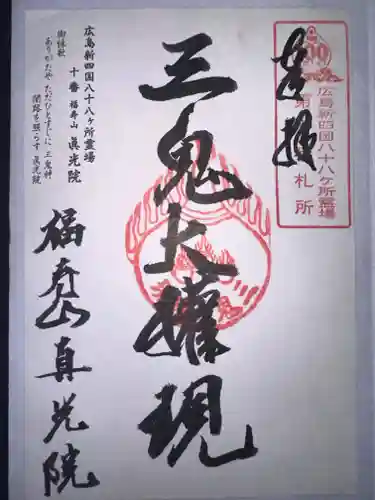 奉拝
広島新四国八十八ヶ所霊場
第
札所
三鬼大権現
広島新四国八十八ヶ所霊場
十番 福寿山 眞光院
御詠歌
ありがたや ただひとすじに 三鬼神
闇路を照らす 眞光院
福寿山真光院